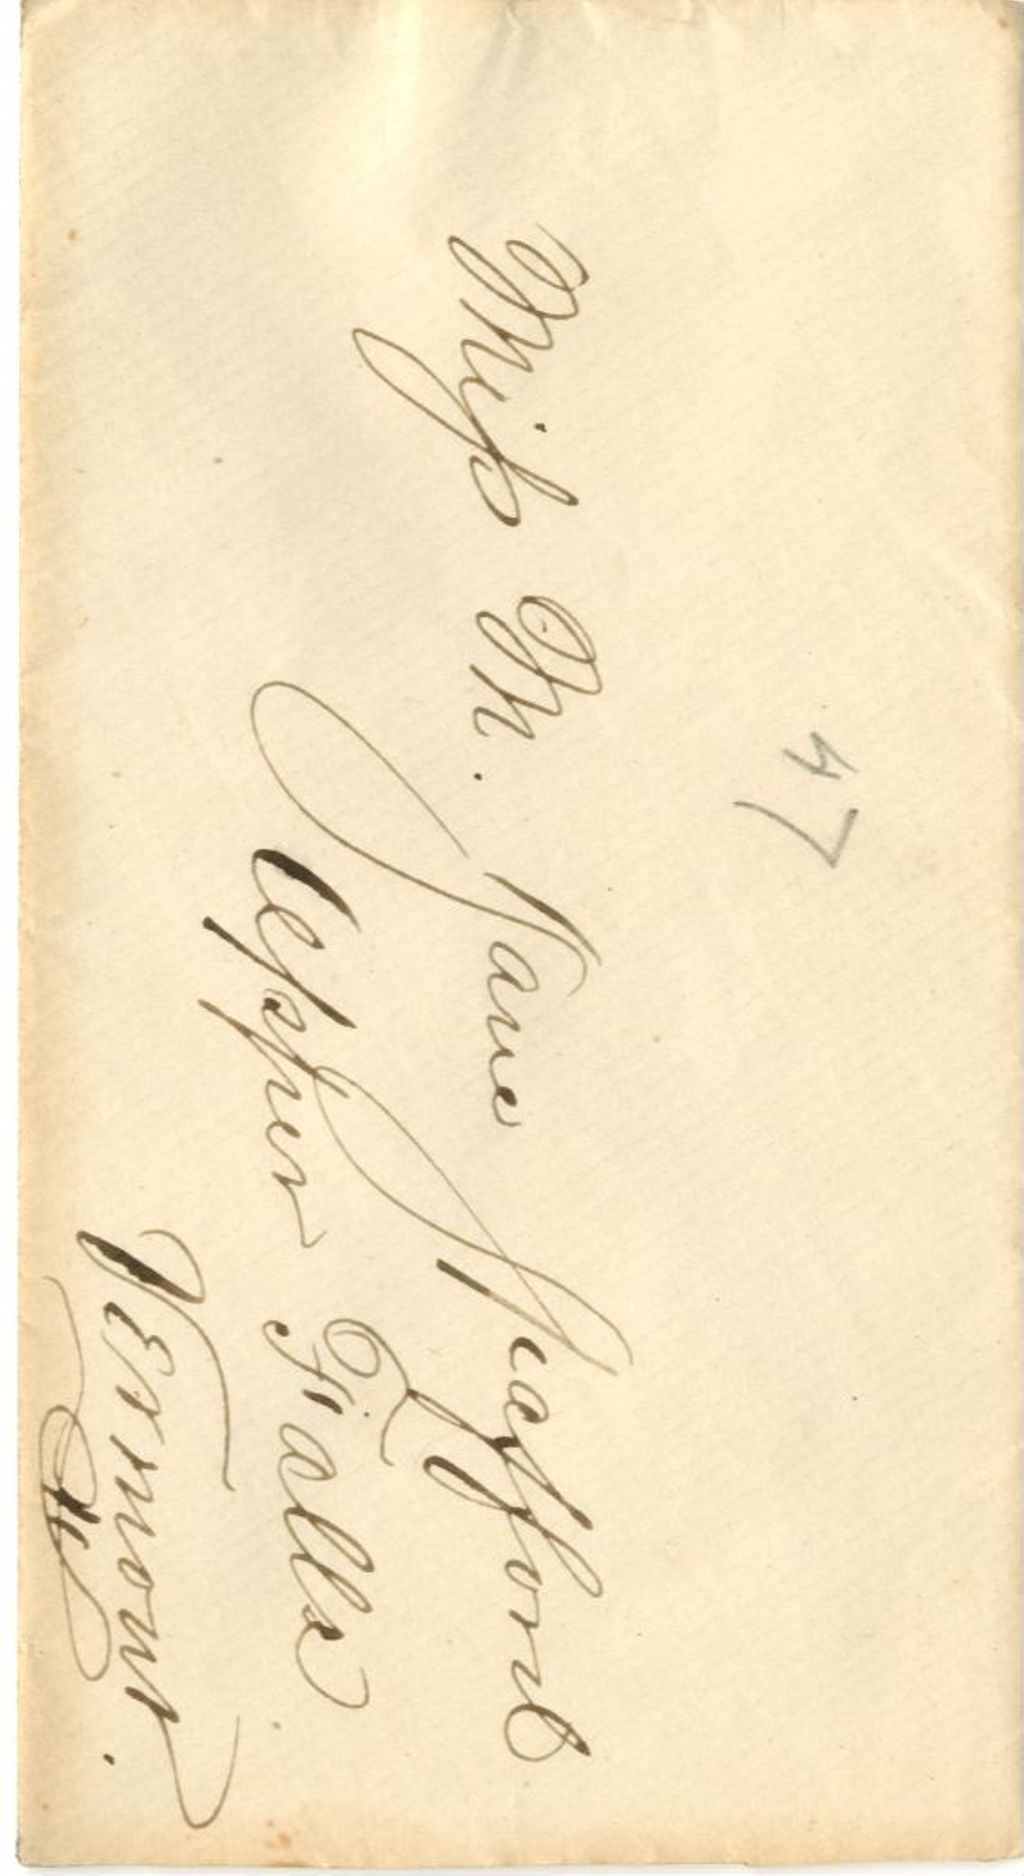 47
Miss M. Jane Safford
Upper Falls
Vermont.